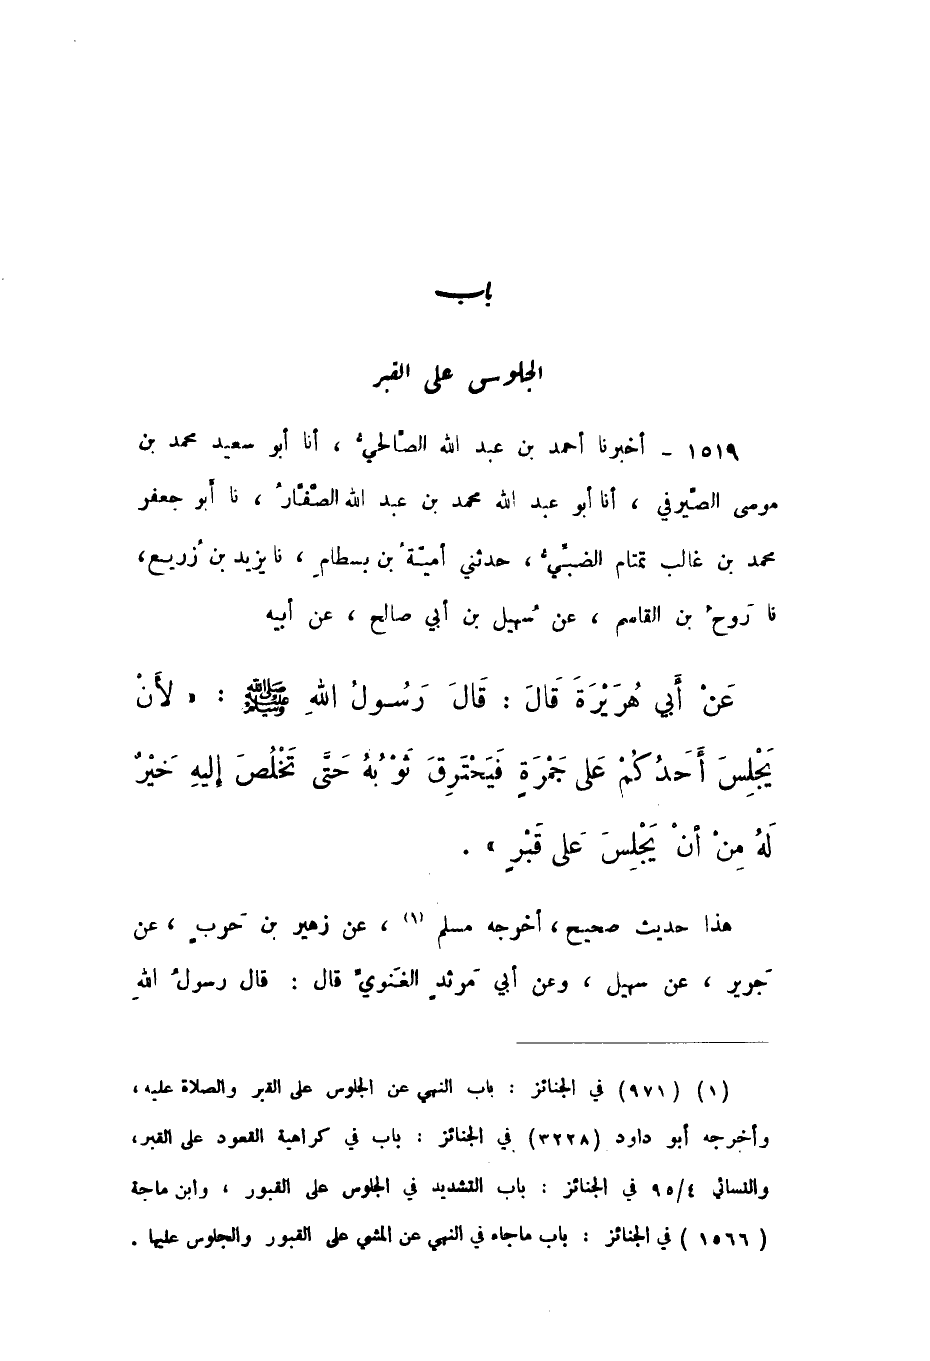 باب
الجلوس على القبر
١٥١٩ - أخبرنا أحمد بن عبد الله الصّالحيُّ ، أنا أبو سعيد محمد بن
موسى الصّيرفي ، أنا أبو عبد الله محمد بن عبد الله الصَّفّارُ ، نا أبو جعفر
محمد بن غالب تمتام الضبِّيُّ ، حدثني أميّةُ بن بسطامِ ، نا يزيد بن زُريع،
نا رَوحُ بن القاسم ، عن سُهيل بن أبي صالح ، عن أبيه
عَنْ أَبي هُرَيْرَةَ قَالَ : قَالَ رَسُولُ اللهِ ﷺ : « لأَنْ
يَجْلِسَ أَحَدُكُمْ عَلى جَمْرَةٍ فَيَحْتَرِقَ ثَوْبُهُ حَتَّى تَخْلُصَ إليهِ خَيْرٌ
لَهُ مِنْ أنْ يَجْلِسَ عَلى قَبْرٍ » .
هذا حديث صحيح، أخرجه مسلم (١) ، عن زهير بن حَوبٍ ، عن
جَوير ، عن سهيل ، وعن أبي مَوثدٍ الغَنويِّ قال : قال رسولُ اللهِ
(١) (٩٧١) في الجنائز : باب النهي عن الجلوس على القبر والصلاة عليه ،
وأخرجه أبو داود (٣٢٢٨) في الجنائز : باب في كراهية القعود على القبر،
والنسائي ٩٥/٤ في الجنائز : باب التشديد في الجلوس على القبور ، وابن ماجة
(١٥٦٦) في الجنائز : باب ماجاء في النهي عن المشي على القبور والجلوس عليها .